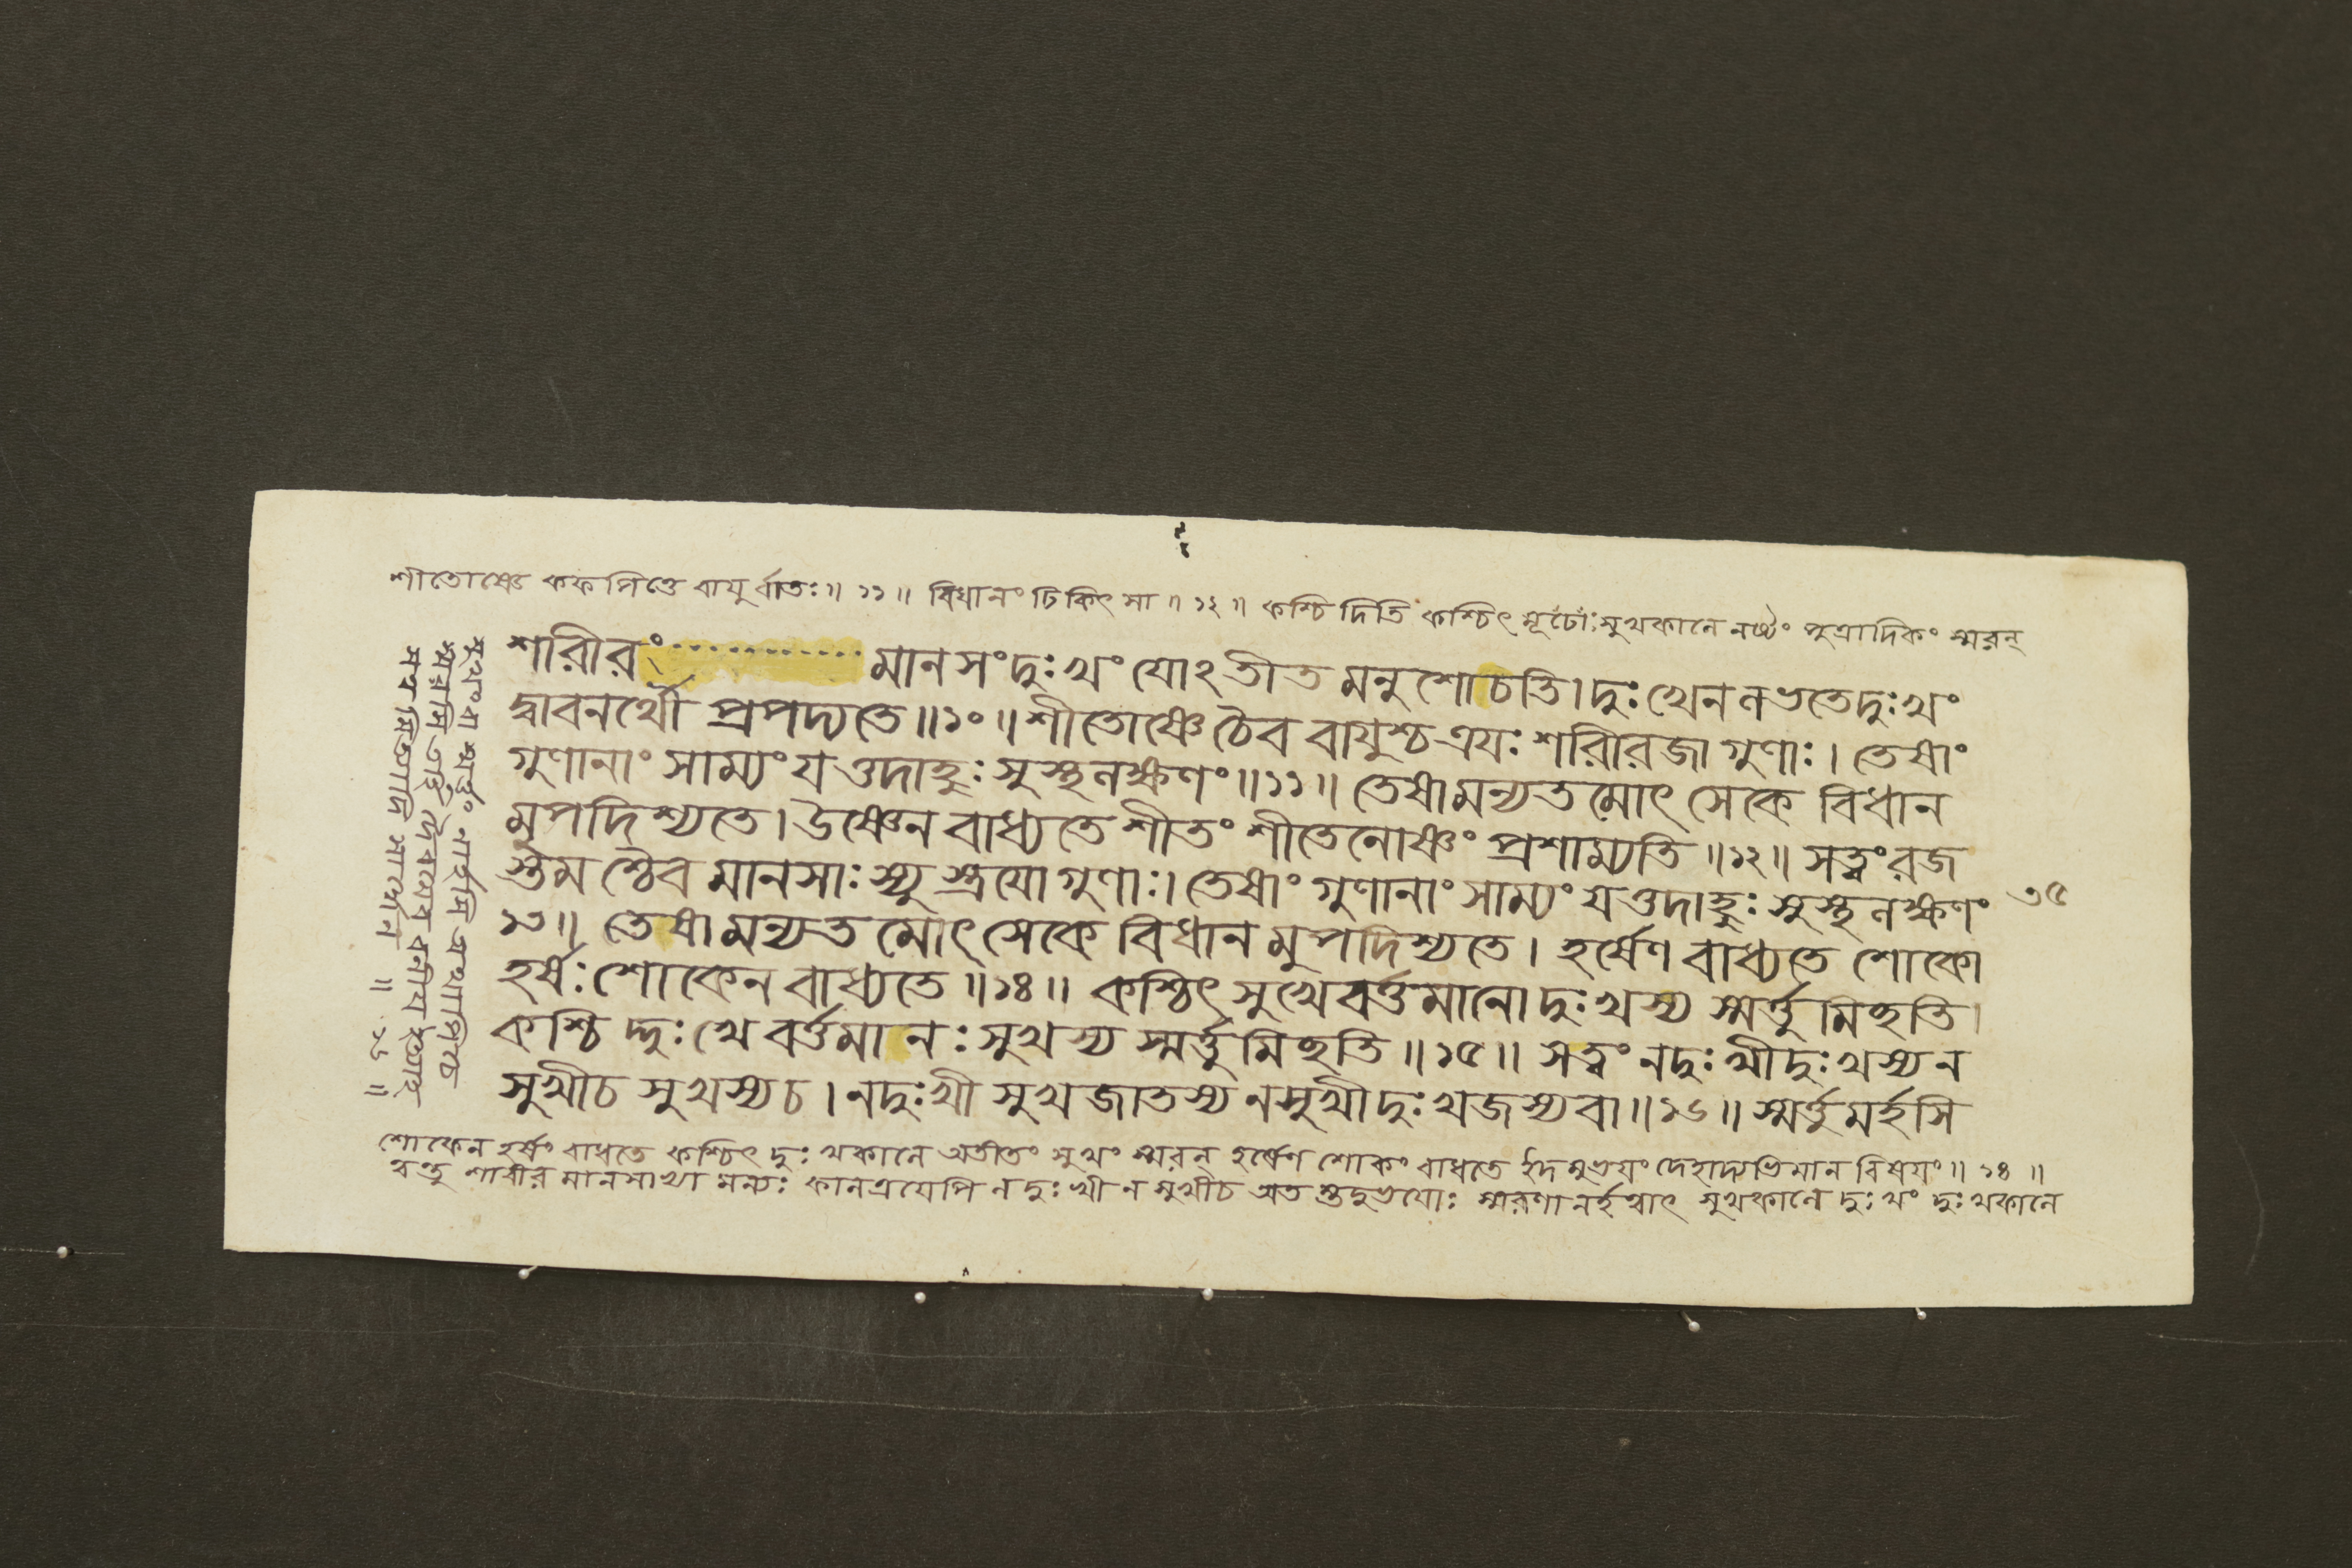 শীতোষ্ণে কফপিত্তে বায়ুর্বাতঃ॥ ১১ ॥ বিধানং চিকিৎসা ॥ ১২ ॥ কশ্চিদিতি কশ্চিৎ সুখকালে নষ্টং পুত্রাদিকং স্মরন্
শারীরং মানসং দুঃখং যোঽতীতমনুশোচতি। দুঃখেন লভতে দুঃখং
দ্বাবনর্থৌ প্রপদ্যতে॥১০॥ শীতোষ্ণে চৈব বায়ুশ্চ ত্রয়ঃ শরীরজা গুণাঃ। তেষাং
গুণানাং সাম্যং যত্তদাহুঃ সুস্থলক্ষণং॥১১॥ তেষামন্যতমোৎসেকে বিধান
মুপদিশ্যতে। উষ্ণেন বাধ্যতে শীতং শীতেনোষ্ণং প্রশাম্যতি॥১২॥ সত্ত্বং রজ
স্তমশ্চৈব মানসাঃ স্যুস্ত্রয়ো গুণাঃ। তেষাং গুণানাং সাম্যং যত্তদাহুঃ সুস্থলক্ষণং
৩৫
১৩॥ তেষামন্যতমোৎসেকে বিধানমুপদিশ্যতে। হর্ষেণ বাধ্যতে শোকো
হর্ষঃ শোকেন বাধ্যতে॥১৪॥ কশ্চিৎ সুখে বর্ত্তমানো দুঃখস্য স্মর্ত্তুমিচ্ছতি।
কশ্চিদ্দুঃখে বর্ত্তমানঃ সুখস্য স্মর্ত্তুমিচ্ছতি॥১৫॥ সত্বং ন দুঃখী দুঃখস্য ন
সুখী চ সুখস্য চ। ন দুঃখী সুখজাতস্য ন সুখী দুঃখজস্য বা॥১৬॥ স্মর্ত্তুমর্হসি
শোকেন হর্ষং বাধতে কশ্চিৎ দুঃখকালে অতীতং সুখং স্মরন্ হর্ষেণ শোকং বাধতে ইদমুভয়ং দেহাদ্যভিমান বিষয়ং॥ ১৪ ॥
ত্বন্তু শারীর মানসাখ্যা কালত্রয়েপি ন দুঃখী ন সুখীচ অতস্তদুভয়োঃ স্মরণানর্হত্বাৎ সুখকালে দুঃখং দুঃখকালে
সুখং বা স্মর্ত্তুং নার্হসি তথাপি চেৎ
স্মরসি তর্হি দৈবমেব বলীয় ইত্যাহ
॥ ১৬ ॥